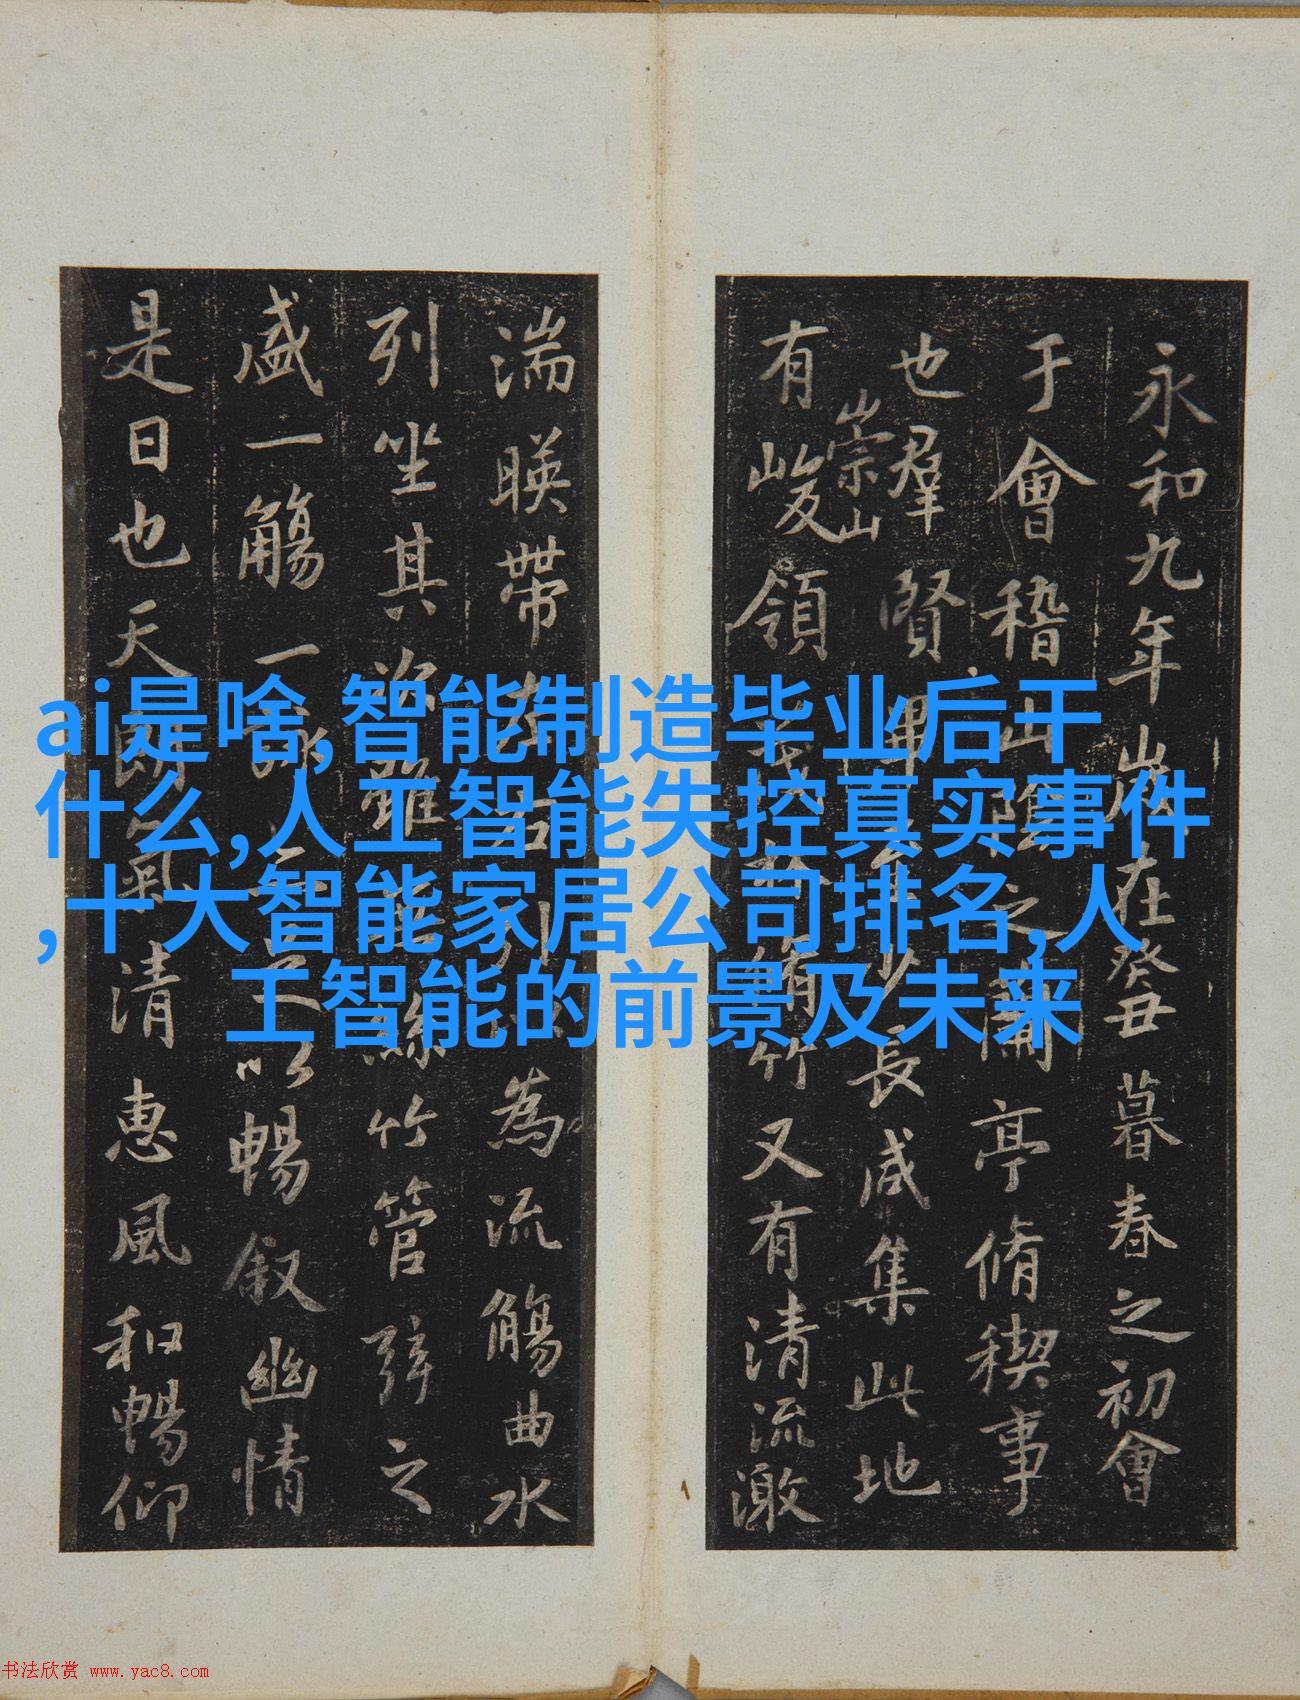 永和九年歲在癸丑暮春之初會
于會稽山陰之蘭亭脩禊事
也羣賢畢至少長咸集此地
崇山
有峻領茂林脩竹又有清流激
湍暎帶左右引以為流觴曲水
列坐其次雖無絲竹管弦之
盛一觴一詠亦足以暢叙幽情
是日也天朗氣清惠風和暢仰
ai是啥,智能制造毕业后干
什么,人工智能失控真实事件
,十大智能家居公司排名,人
工智能的前景及未来
书法欣赏 www.yac8.com